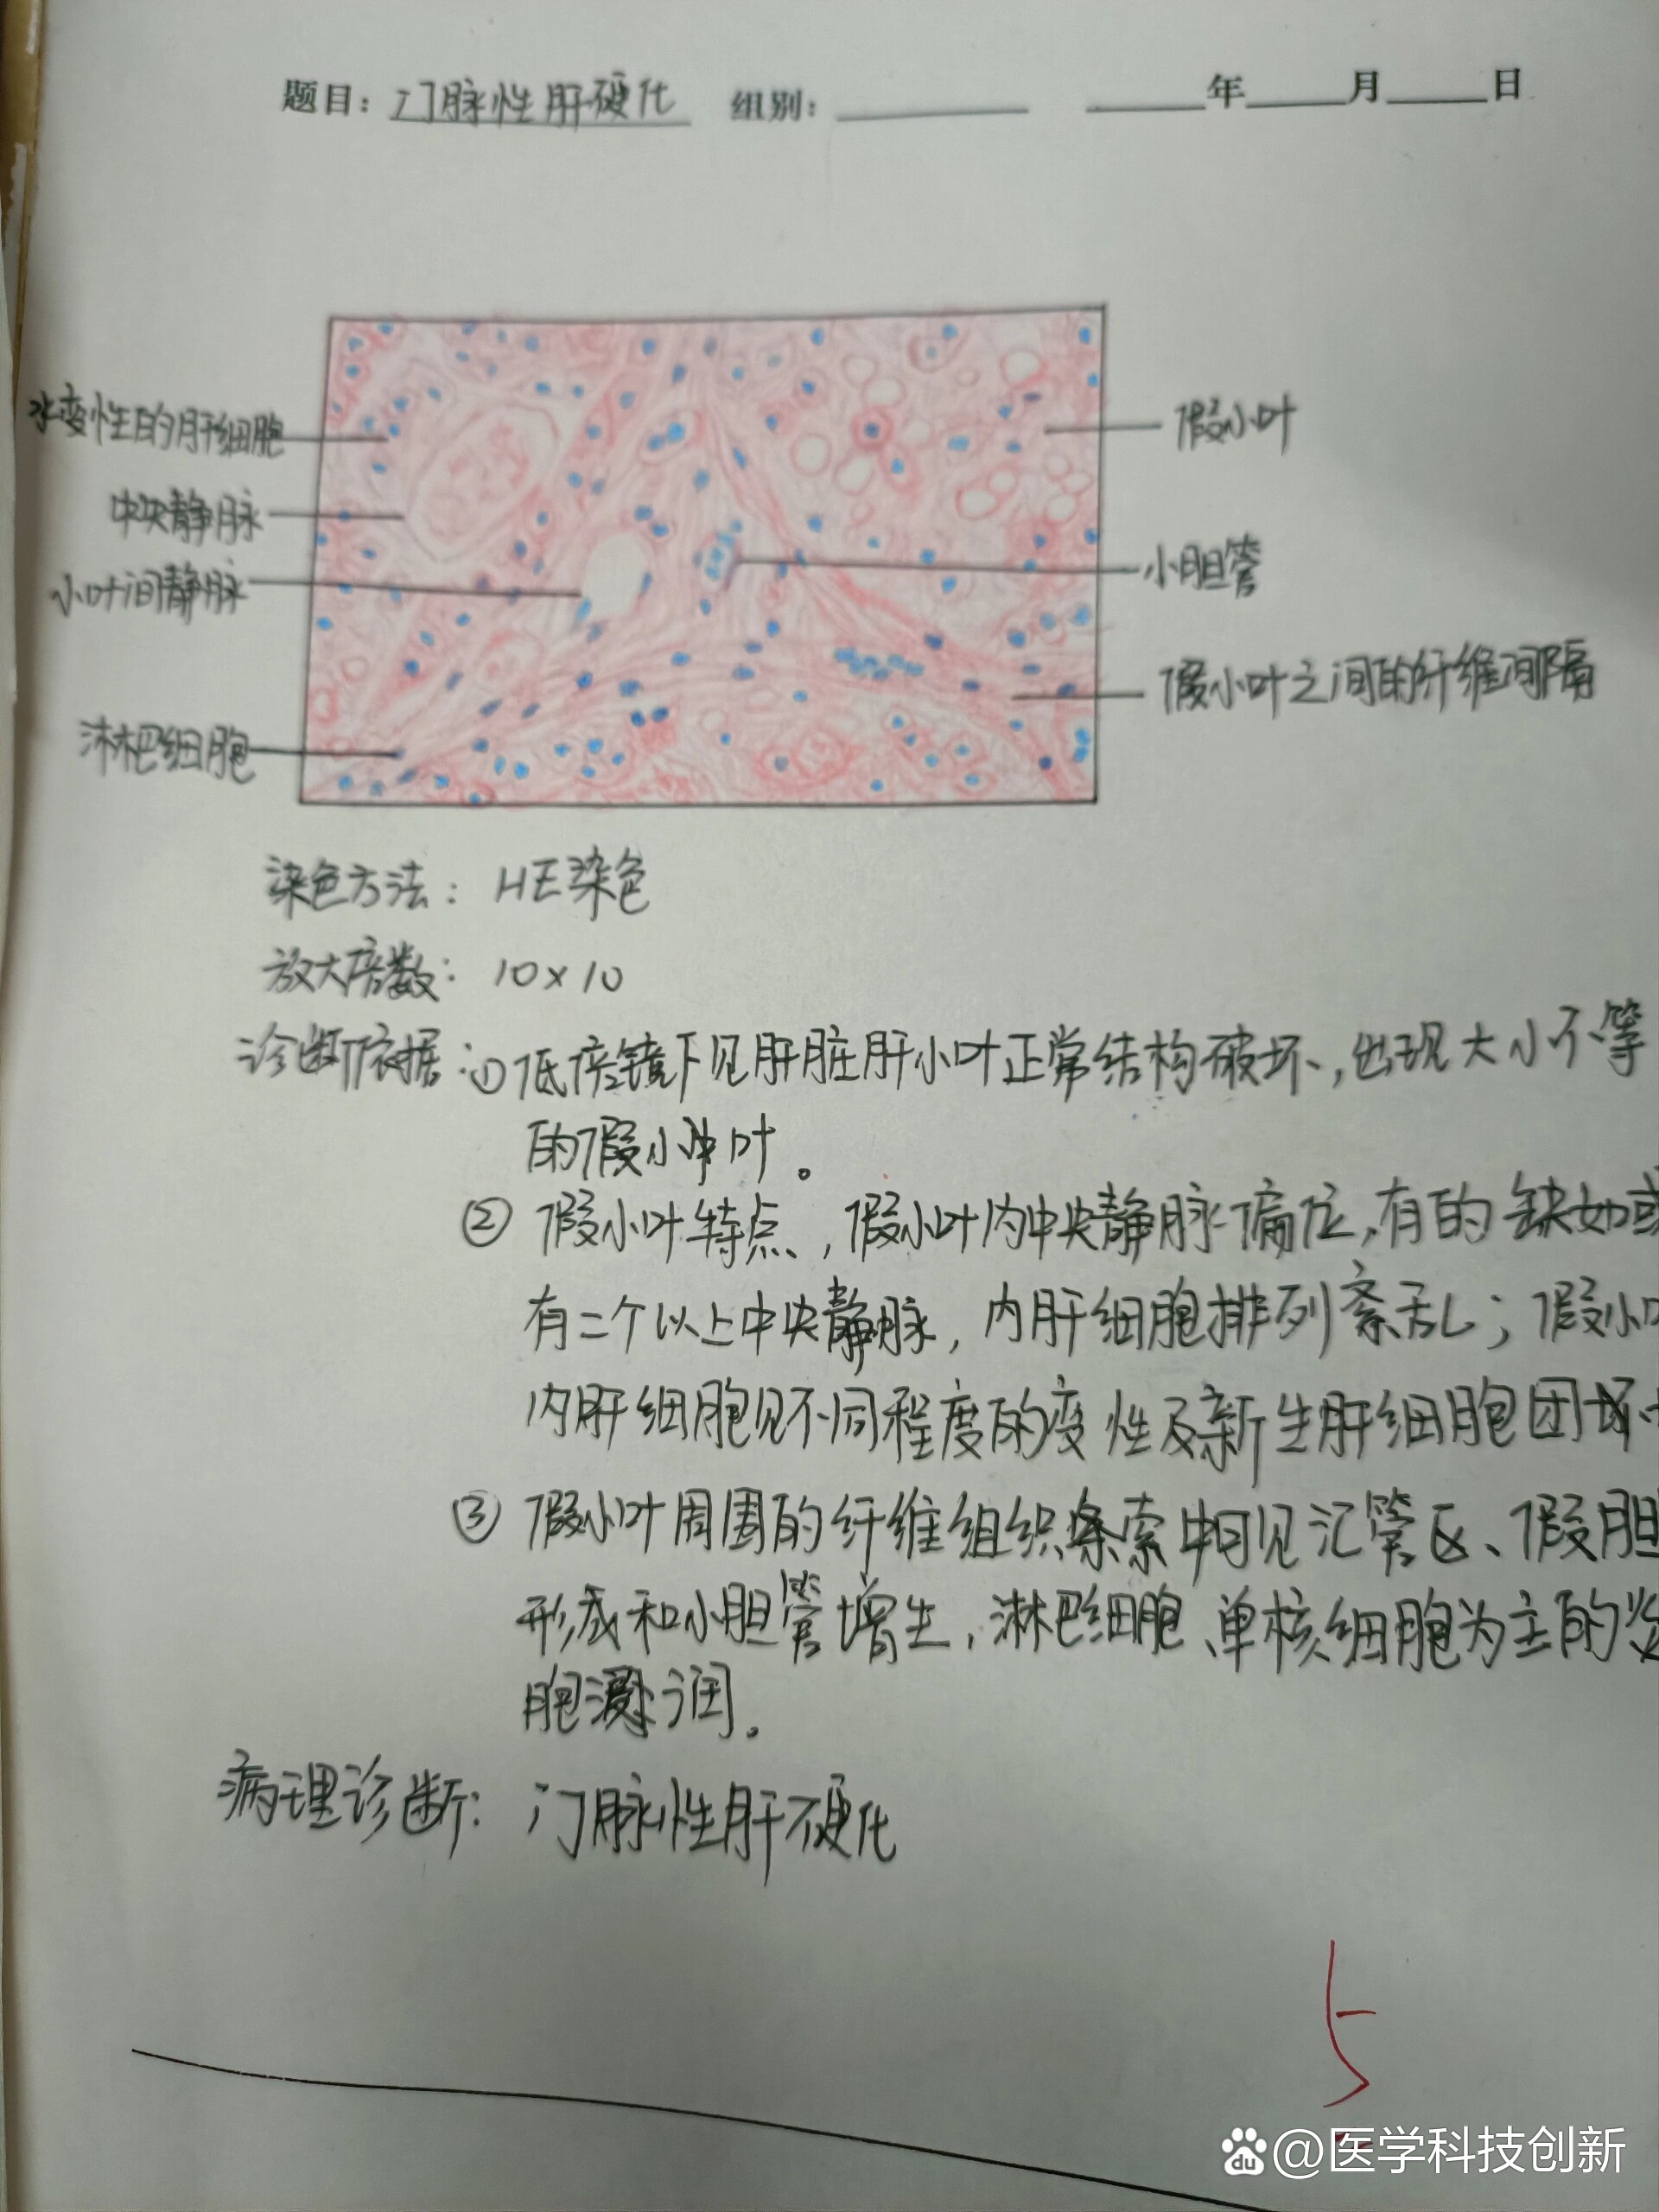 题目：门脉性肝硬化 组别： 年 月 日
水变性的肝细胞
中央静脉
小叶间静脉
淋巴细胞
假小叶
小胆管
假小叶之间的纤维间隔
染色方法：HE染色
放大倍数：10×10
诊断依据：①低倍镜下见肝脏肝小叶正常结构破坏、出现大小不等
的假小叶。
②假小叶特点，假小叶内中央静脉偏位，有的缺如或
有二个以上中央静脉，内肝细胞排列紊乱；假小
内肝细胞见不同程度的变性及新生肝细胞团
③假小叶周围的纤维组织条索中可见汇管区、假胆
形成和小胆管增生，淋巴细胞、单核细胞为主的
胞浸润。
病理诊断：门脉性肝硬化
5
Bai du @医学科技创新